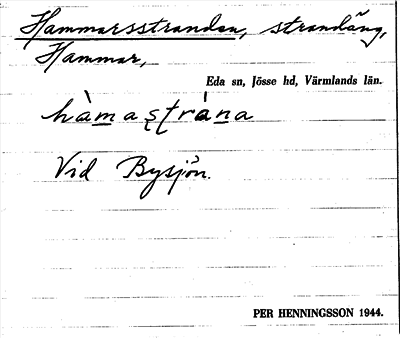 Hammarsstranden, strandäng,
Hammar,
Eda sn, Jösse hd, Värmlands län.
hàmastràna
Vid Bysjön.
PER HENNINGSSON 1944.